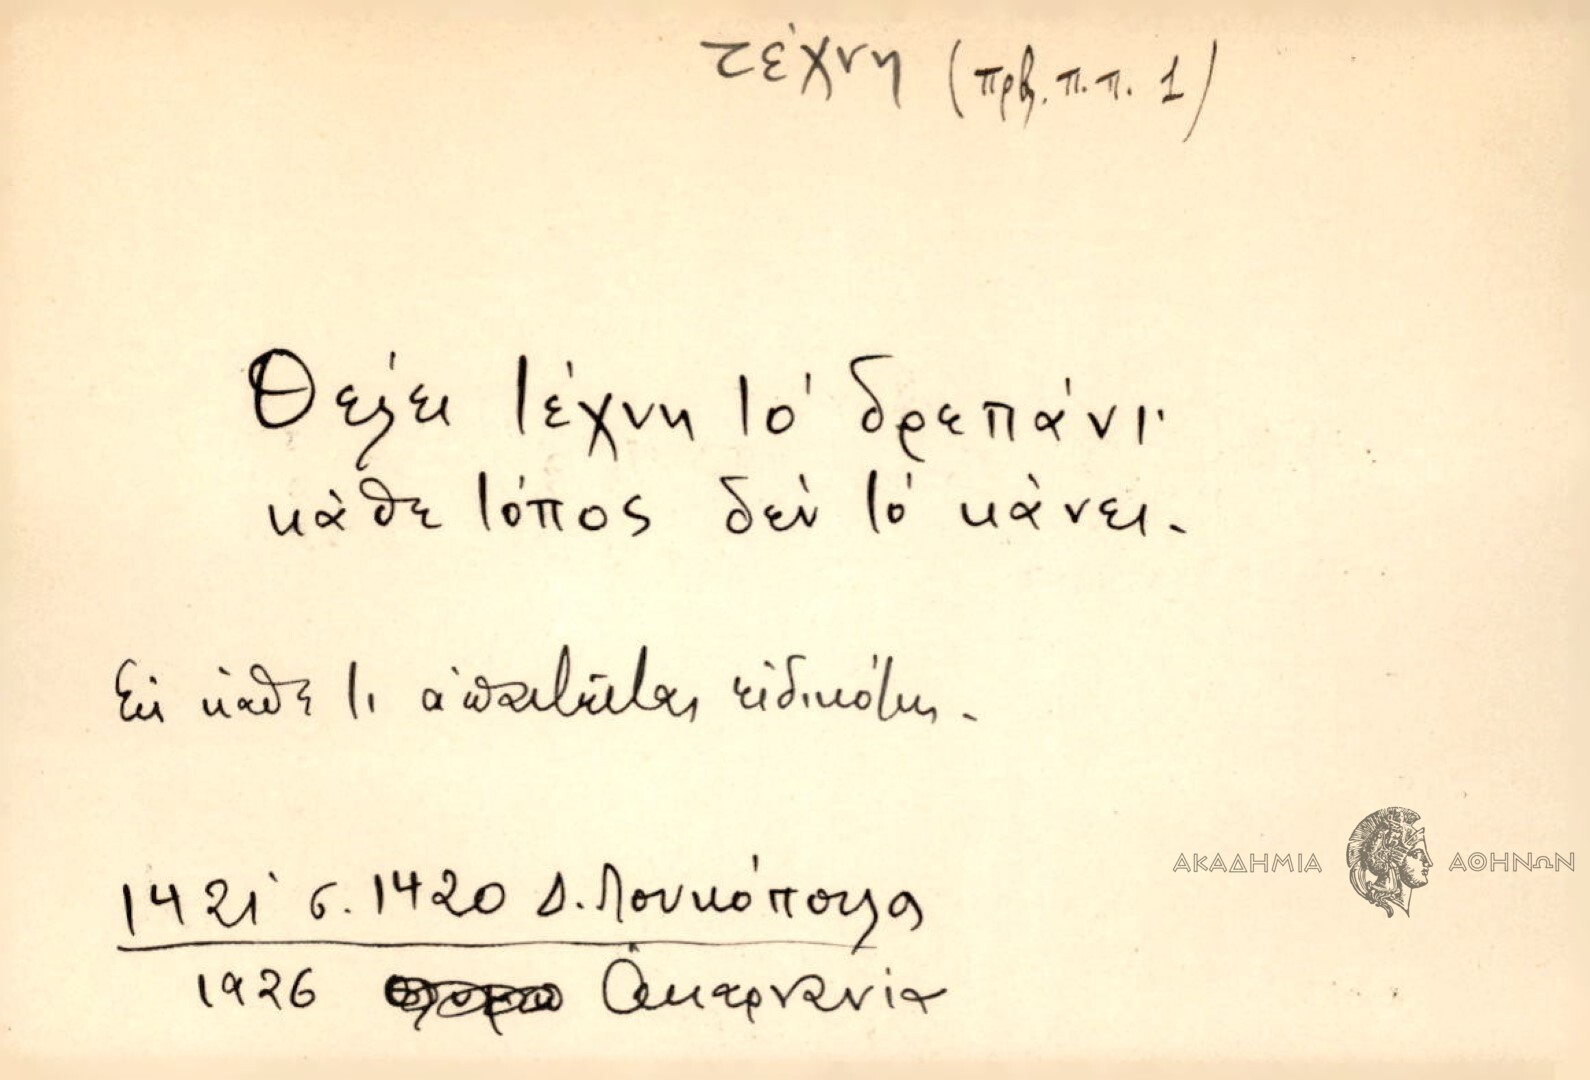 τέχνη (πρβ. π.π. 1)
Θέλει τέχνη το' δρεπάνι·
κάθε τόπος δεν το' κάνει.
Εις κάθε τι απαιτείται ειδικότης.
1421 σ. 1420 Δ. Λουκόπουλος
1926 Ακαρνανία
ΑΚΑΔΗΜΙΑ ΑΘΗΝΩΝ